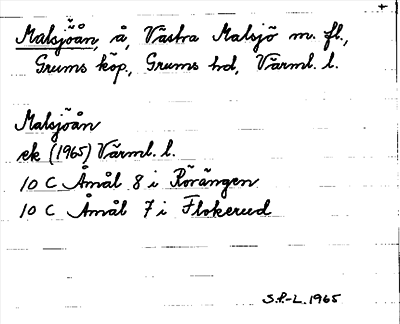 Malsjöån, å, Västra Malsjö m. fl.,
Grums köp., Grums hd, Värml. l.
Malsjöån
ek (1965) Värml. l.
10 C Åmål 8 i Rörängen
10 C Åmål 7 i Flokerud
S.P.-L. 1965